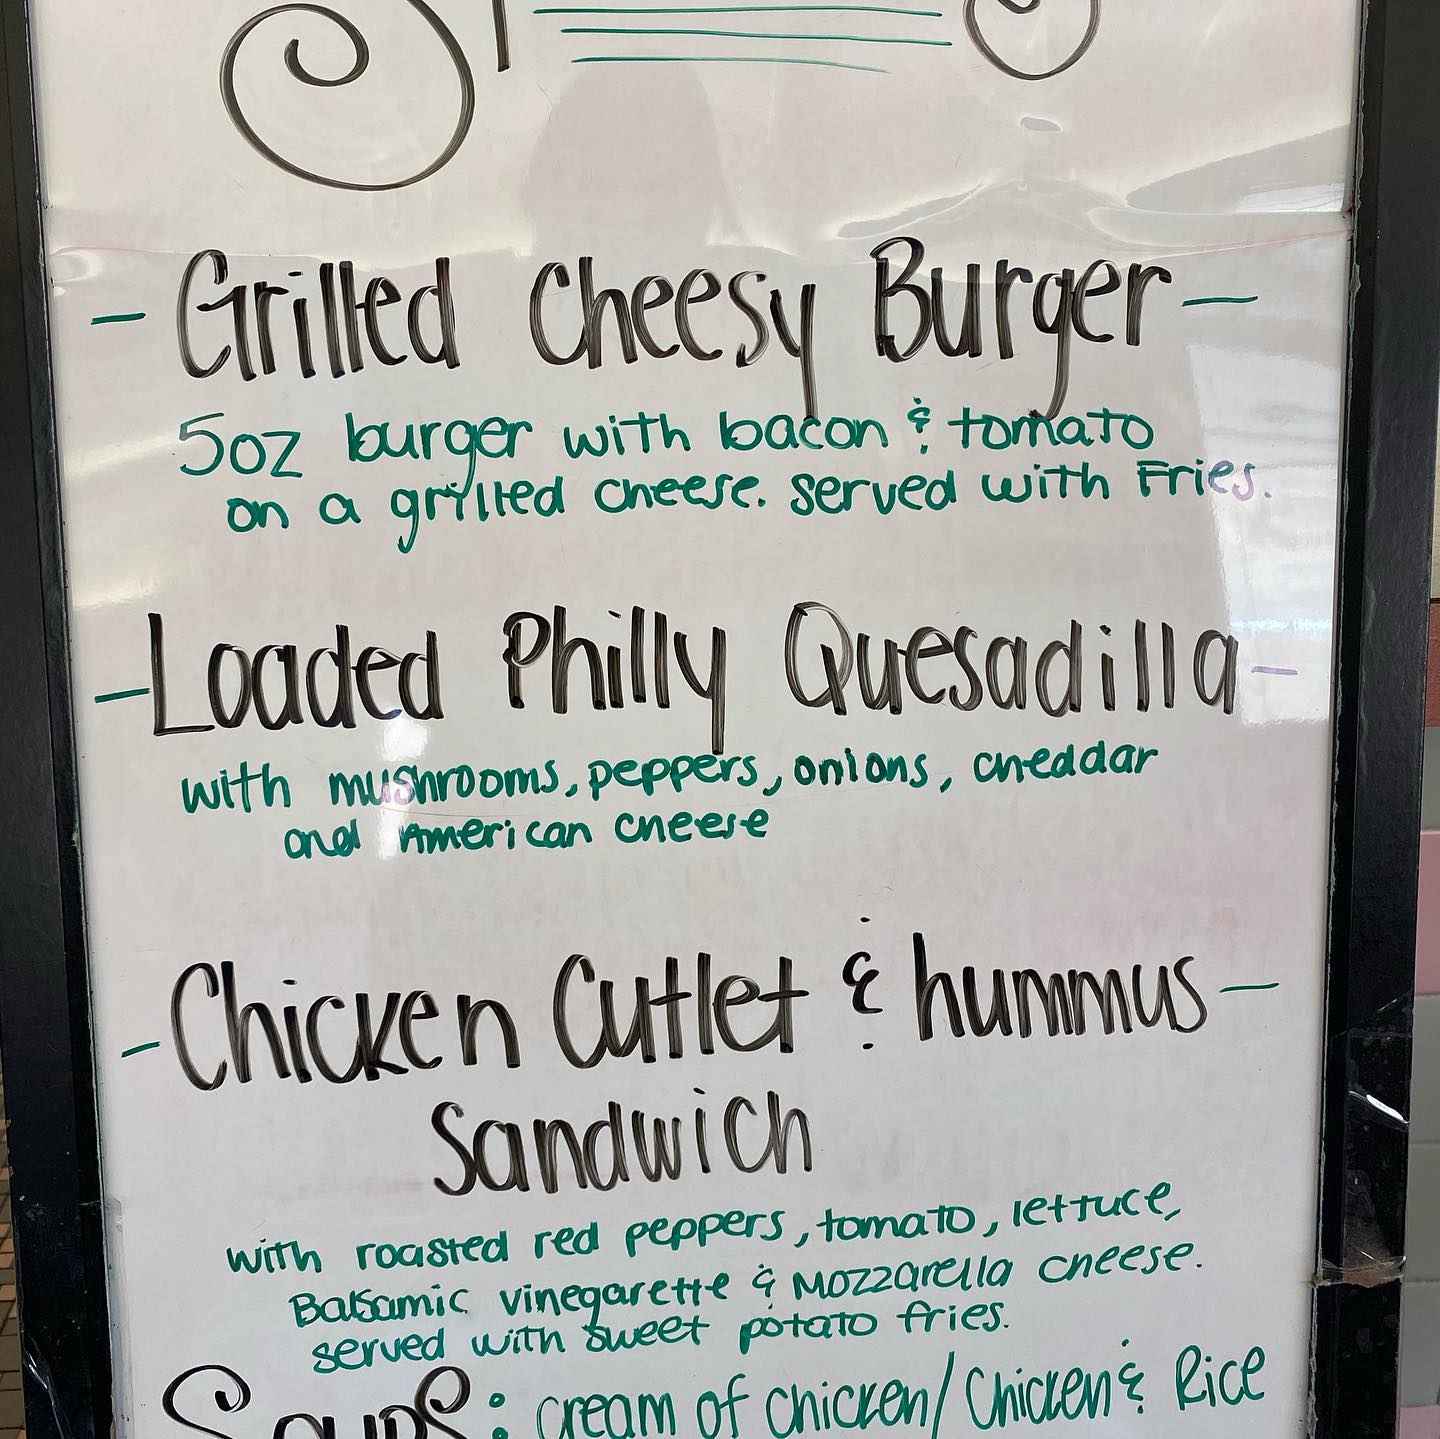 - Grilled Cheesy Burger -
5oz burger with bacon & tomato
on a grilled cheese. served with Fries.
- Loaded Philly Quesadilla -
with mushrooms, peppers, onions, cheddar
and American cheese
- Chicken Cutlet & hummus -
Sandwich
with roasted red peppers, tomato, lettuce,
Balsamic vinegarette & Mozzarella cheese.
served with sweet potato fries.
Soups: cream of chicken/ Chicken & Rice